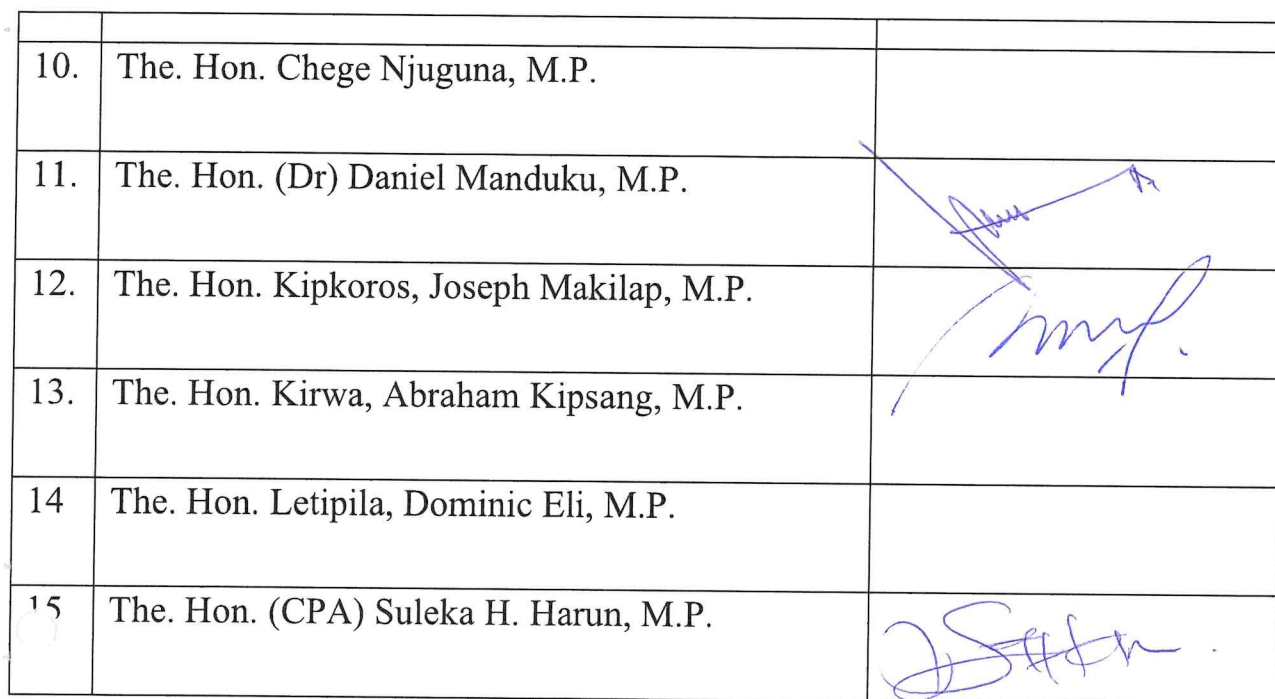 10. The. Hon. Chege Njuguna, M.P.
11. The. Hon. (Dr) Daniel Manduku, M.P.
12. The. Hon. Kipkoros, Joseph Makilap, M.P.
13. The. Hon. Kirwa, Abraham Kipsang, M.P.
14 The. Hon. Letipila, Dominic Eli, M.P.
15 The. Hon. (CPA) Suleka H. Harun, M.P.